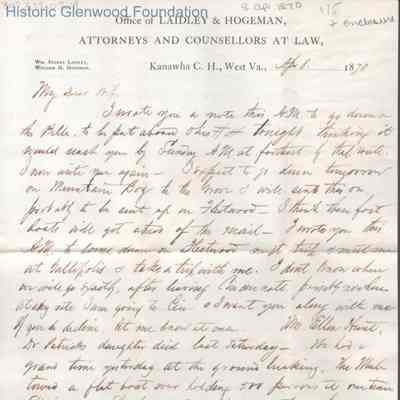 Historic Glenwood Foundation
8 Apr 1870
1/8
+ enclosure
Office of LAIDLEY & HOGEMAN,
ATTORNEYS AND COUNSELLORS AT LAW,
Wm. Sydney Laidley,
William H. Hogeman.
Kanawha C. H., West Va., Apl 8 1870
My Dear
I wrote you a note this A.M. to go down on
the to be put aboard tonight, thinking it
would reach you by Sunday A.M. at fartherest of the week.
I now write you again - I expect to go down tomorrow
on Mountain Boy to the & will send this on
probably to be sent up on Fleetwood - I think these fast
boats will get ahead of the mail - I wrote you this
A.M. to come down on Fleetwood & meet me
at Gallipolis & take a trip with me. I don't know where
we will go exactly, after leaving
at any rate I am going to Cin & I want you along with me
if you decline let me know at once. Mrs Ellen Hunt,
Dr Patricks daughter died last Saturday - We had a
grand time yesterday at the ground breaking. The
towed a flat boat over holding 500 persons at one time